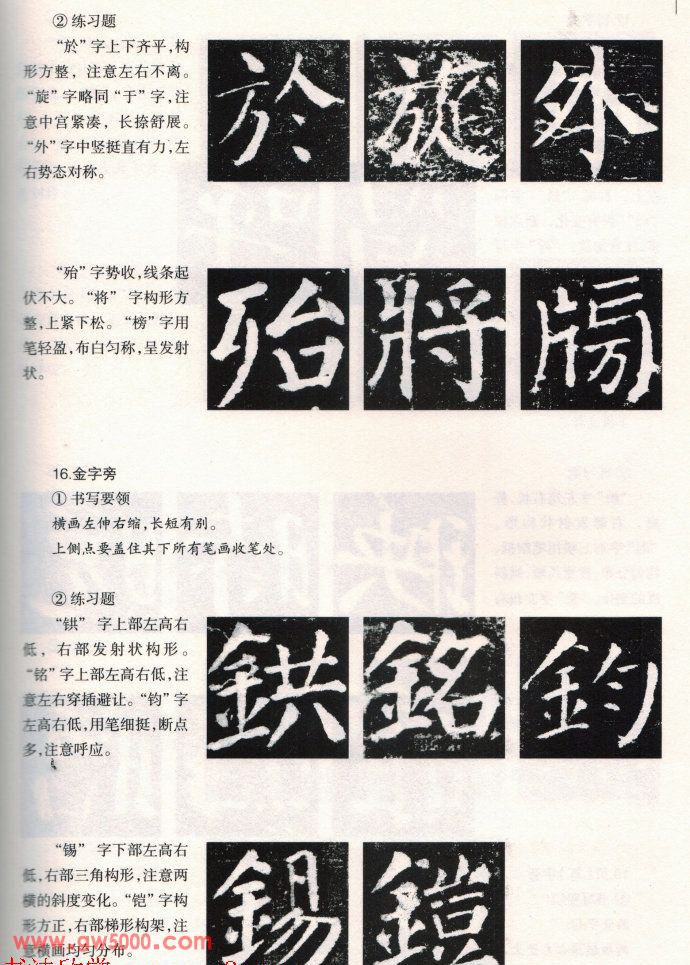 ② 练习题
“於”字上下齐平,构
形方整，注意左右不离。
“旋”字略同“于”字,注
意中宫紧凑，长捺舒展。
“外”字中竖挺直有力,左
右势态对称。
於 旋 外
“殆”字势收,线条起
伏不大。“将”字构形方
整,上紧下松。“榜”字用
笔轻盈,布白匀称,呈发射
状。
殆 將 牓
16.金字旁
① 书写要领
横画左伸右缩,长短有别。
上侧点要盖住其下所有笔画收笔处。
② 练习题
“䥃”字上部左高右
低，右部发射状构形。
“铭”字上部左高右低,注
意左右穿插避让。“钧”字
左高右低,用笔细挺,断点
多,注意呼应。
銘 鈞
“锡”字下部左高右
低,右部三角构形,注意两
横的斜度变化。“铠”字构
形方正,右部梯形构架,注
意横画均匀分布。
錫 鎧
www.gw5000.com